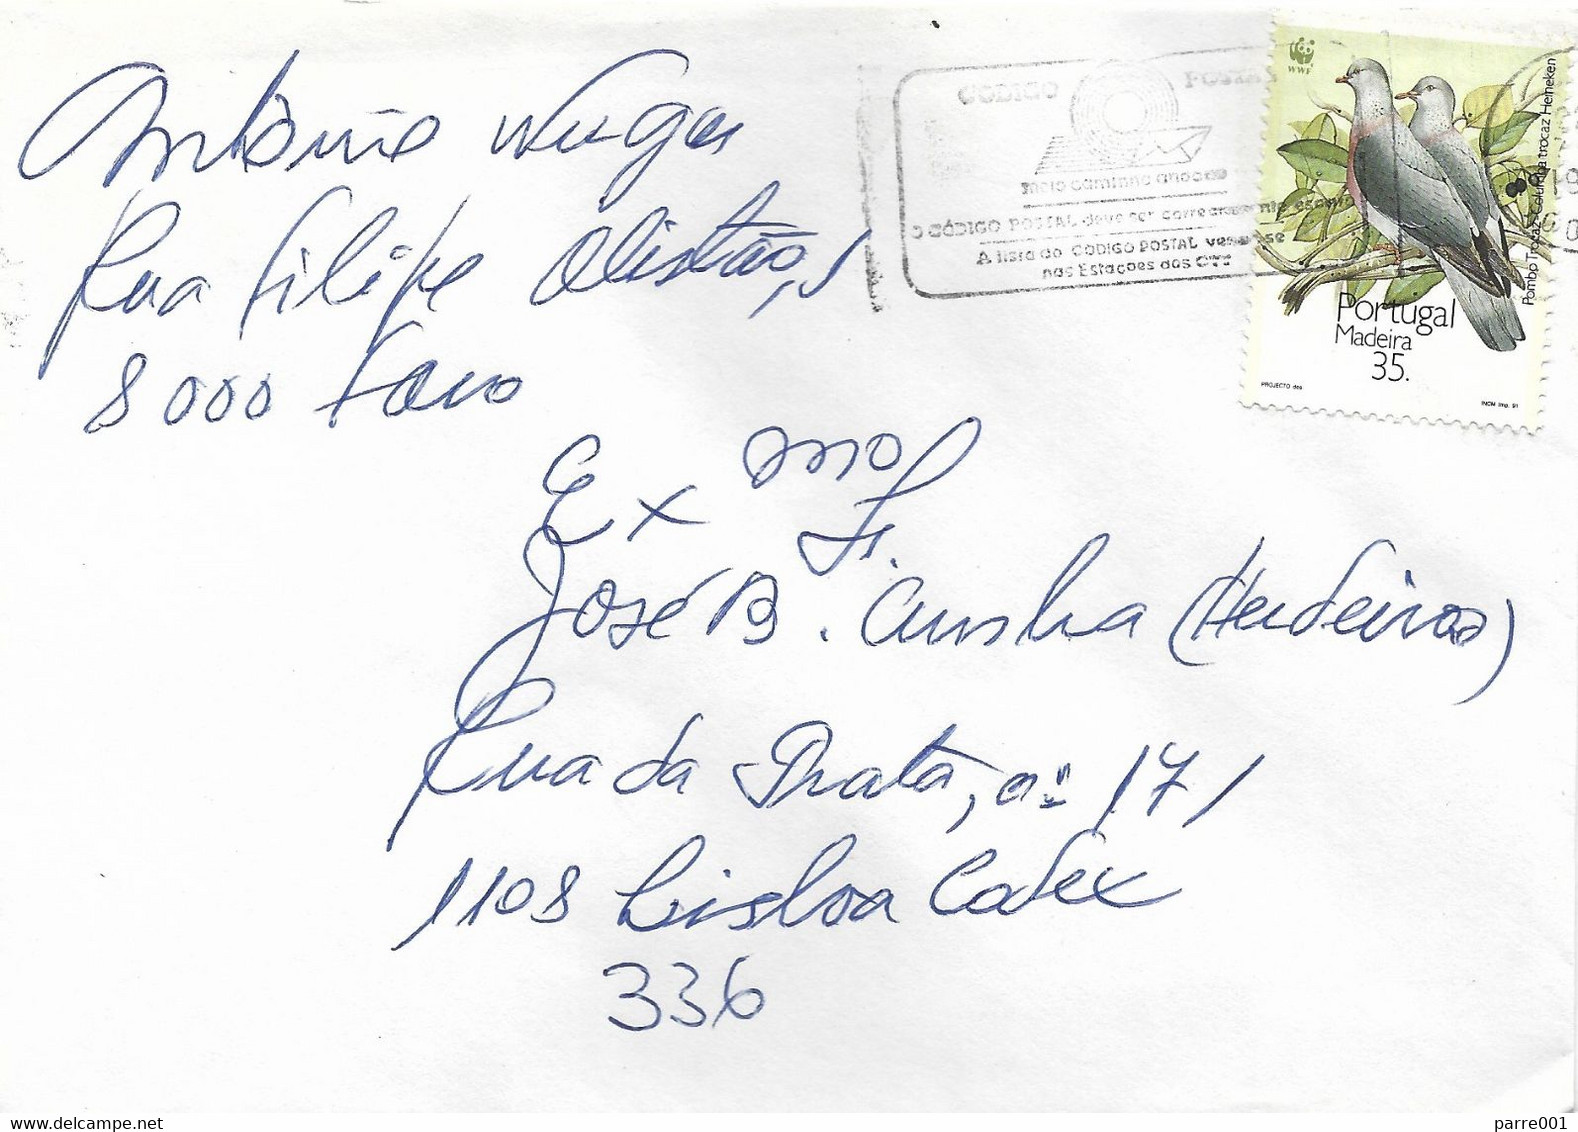 António
Rua Filipe Alistão, 1
8000 Faro
CÓDIGO POSTAL
meio caminho andado
O CÓDIGO POSTAL deve ser correctamente
A lista do CÓDIGO POSTAL vende-se
nas Estações dos CTT
WWF
Pombo Trocaz Columba trocaz Heineken
Portugal
Madeira
35.
PROJECTO dos
INCM Imp. 91
Exmo
Sr.
José B. Cunha (Herdeiros)
Rua da Prata, nº 171
1108 Lisboa Codex
336
parre001